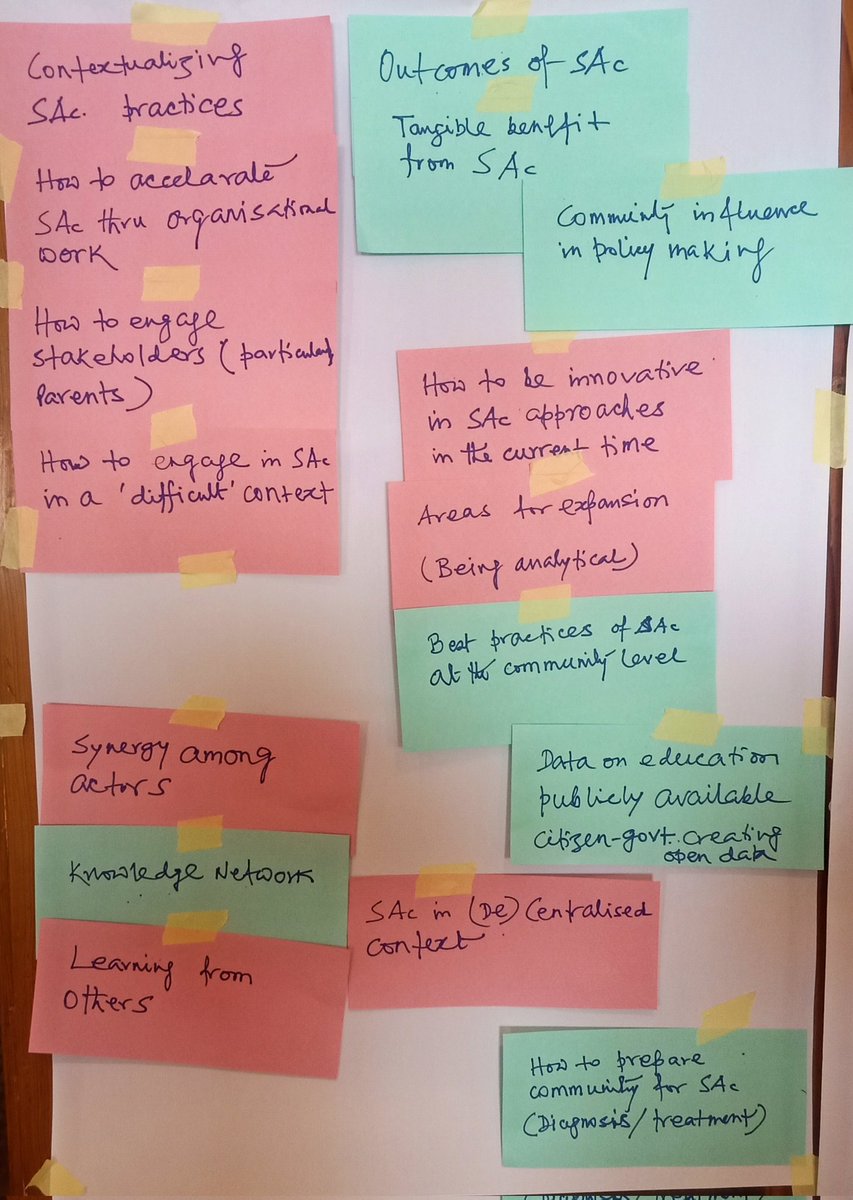 Contextualizing
SAc. practices
How to accelarate
SAc thru organisational
work
How to engage
stakeholders (particularly
Parents)
How to engage in SAc
in a 'difficult' context
Outcomes of SAc
Tangible benefit
from SAc
Community influence
in policy making
How to be innovative
in SAc approaches
in the current time
Areas for expansion
(Being analytical)
Best practices of SAc
at the community level
Data on education
publicly available
citizen-govt. creating
open data
Synergy among
actors
Knowledge Network
Learning from
Others
SAc in (De) Centralised
context
How to prepare
community for SAc
(Diagnosis/treatment)